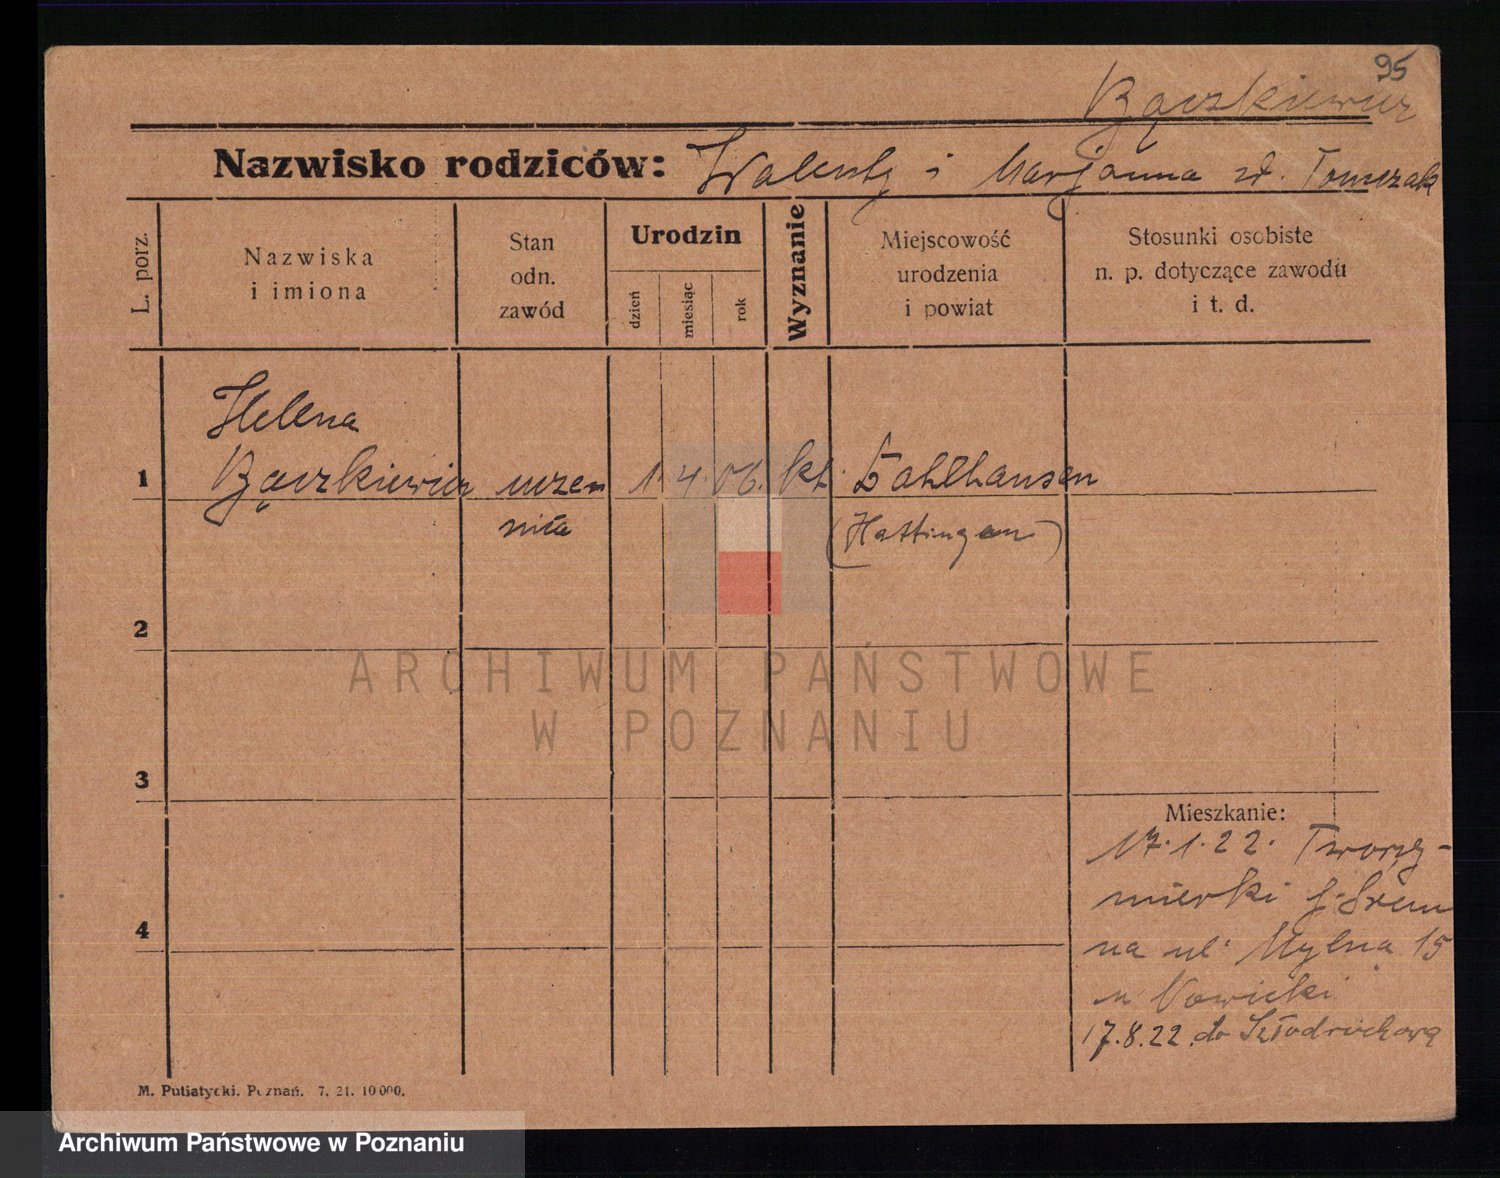 95
Bączkiewicz
Nazwisko rodziców: Walenty i Marjanna zd. Tomczak
L. porz.
Nazwiska
i imiona
Stan
odn.
zawód
Urodzin
dzień
miesiąc
rok
Wyznanie
Miejscowość
urodzenia
i powiat
Stosunki osobiste
n. p. dotyczące zawodu
i t. d.
Helena
1 Bączkiewicz uczen 1. 4. 06. kt. Dahlhausen
nica (Hattingen)
2
ARCHIWUM PAŃSTWOWE
W POZNANIU
3
Mieszkanie:
17.1.22.
4
na ul. Mylna 15
u Nowicki
17.8.22. do
M. Putiatycki. Poznań. 7. 21. 10000.
Archiwum Państwowe w Poznaniu